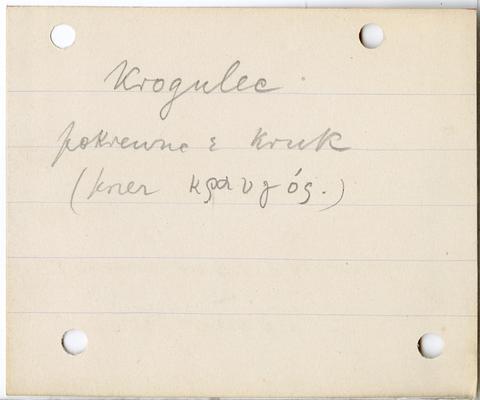 Krogulec
pokrewne z kruk
(krzer κραυγός.)